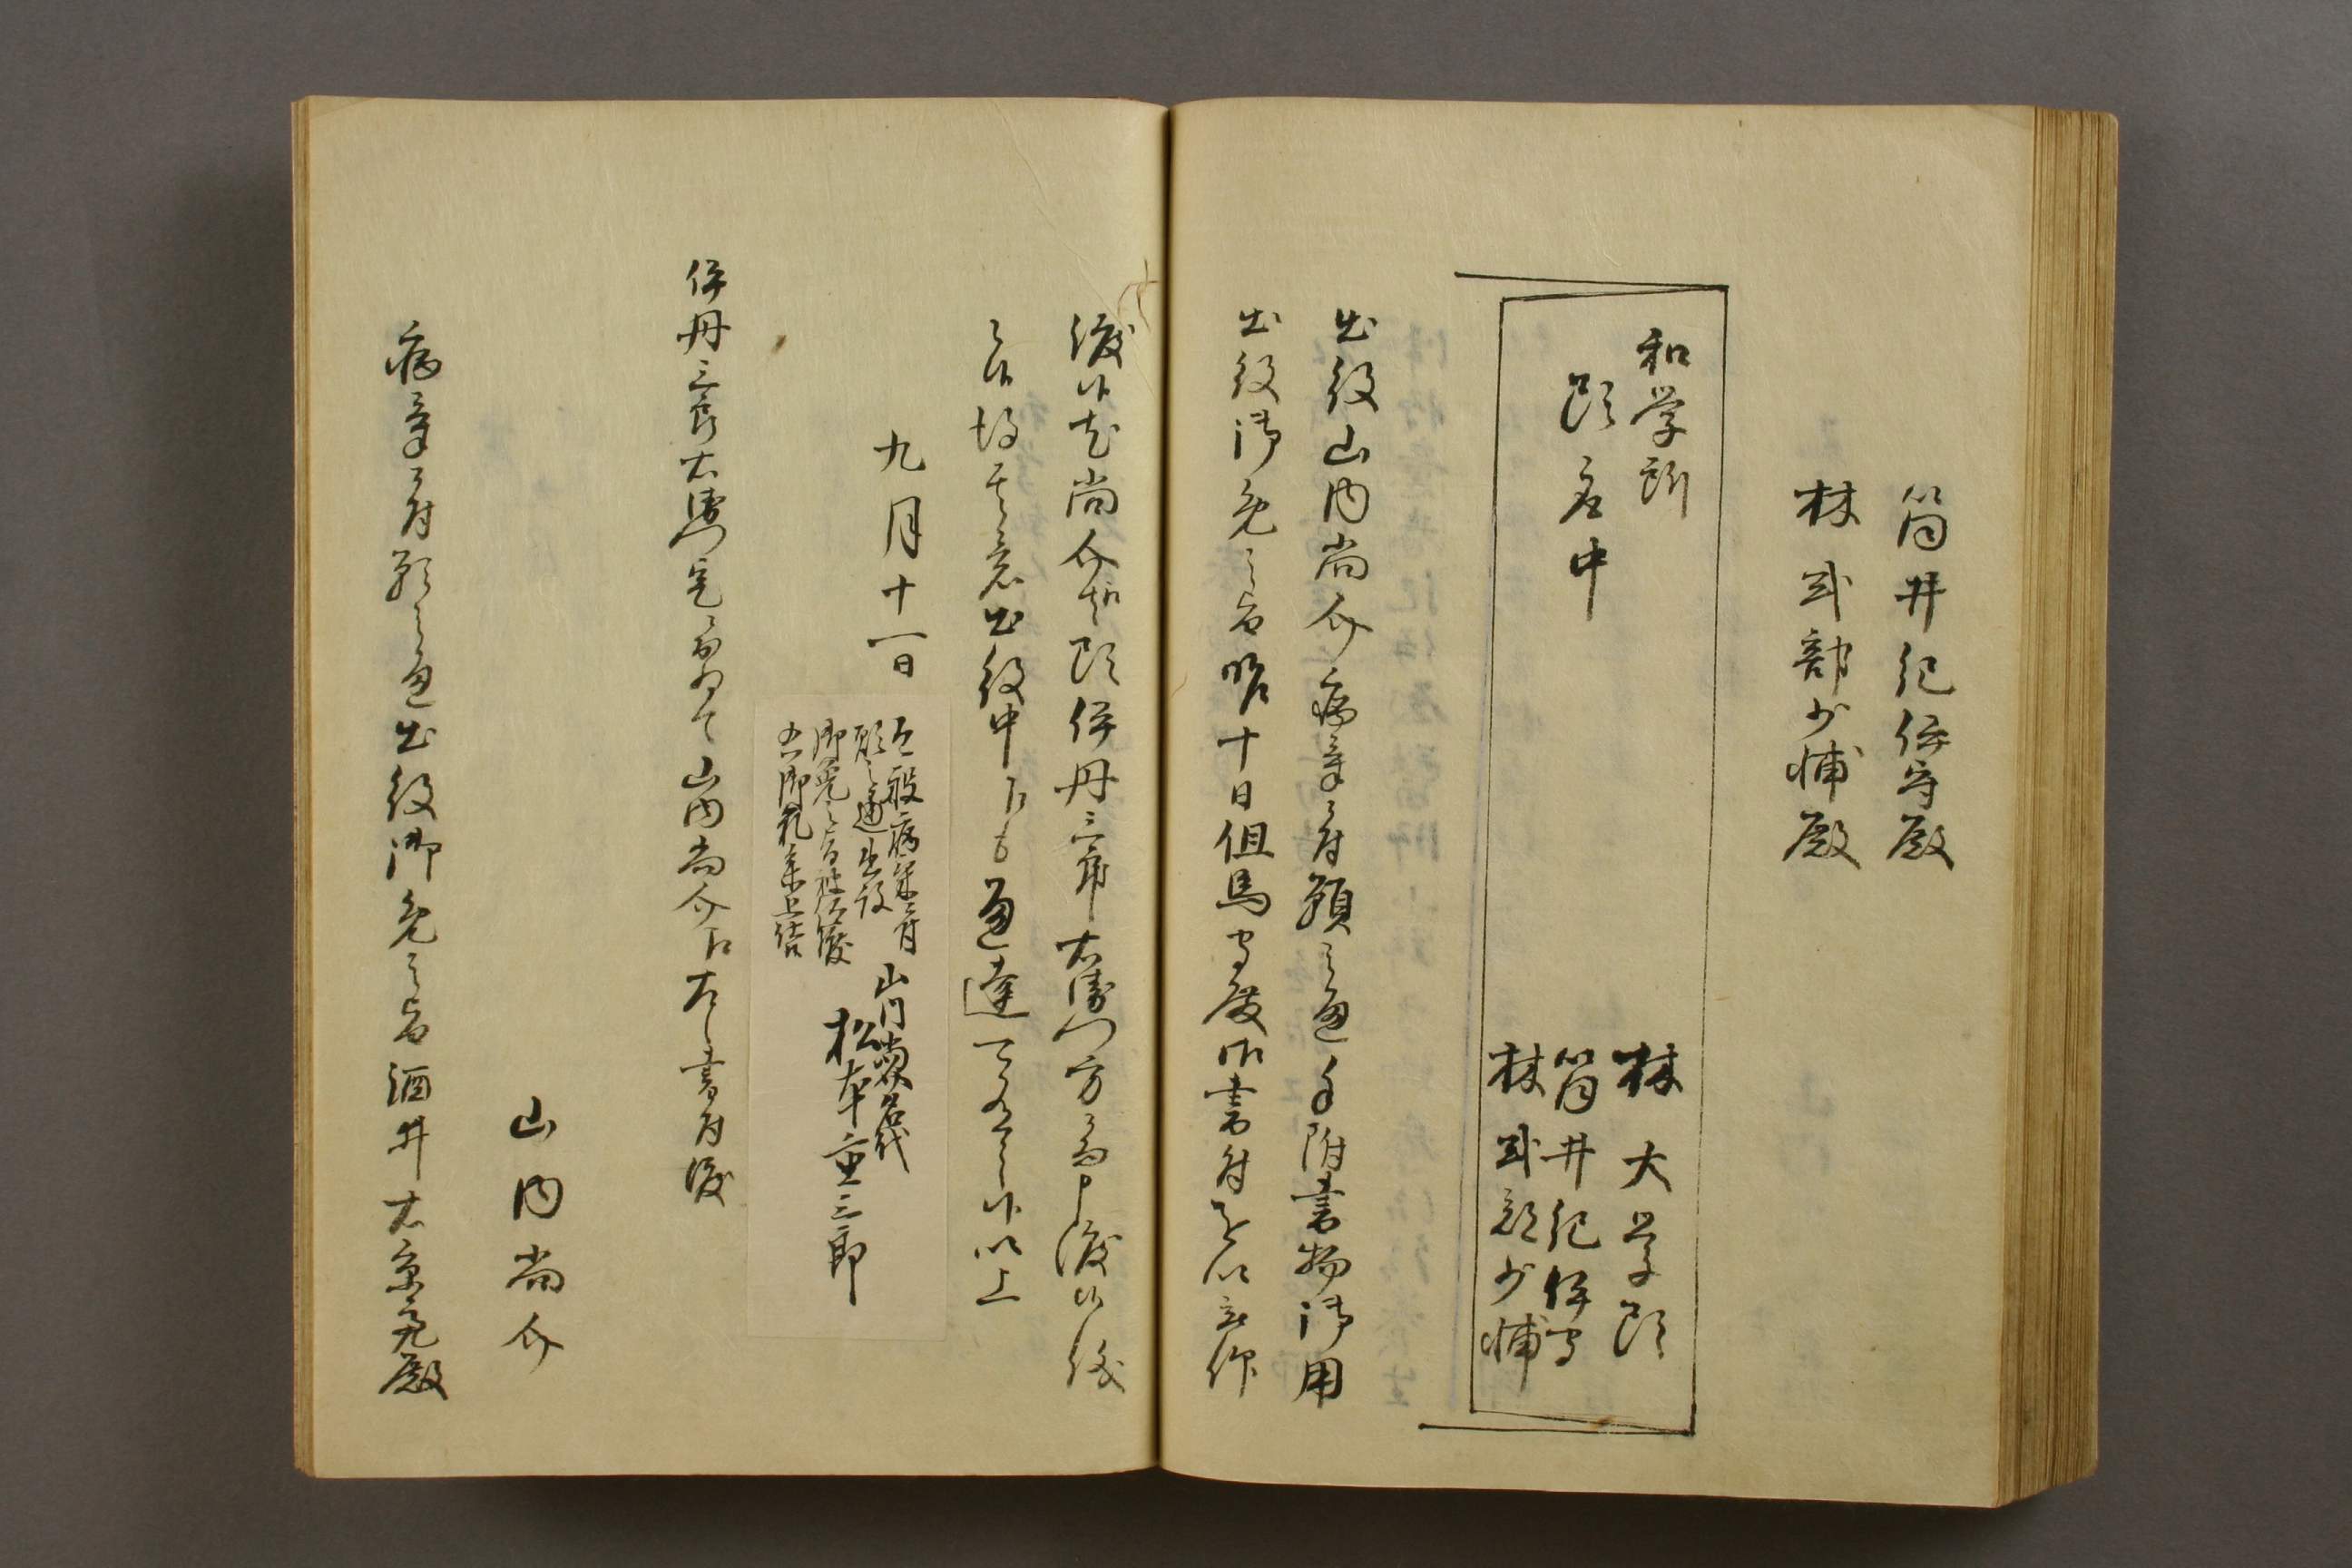 筒井紀伊守殿
林式部少輔殿
和学所
頭名中
林大学頭
筒井紀伊守
林式部少輔
出役山内尚介病気ニ付願之通手附書物御用
出役御免之旨昨十日但馬守殿御書付を以被仰
渡候尤尚介名代頭伊丹三郎右衛門方ニ而申渡候後
之候均其意出役中江も通達可有之候以上
九月十一日
病気ニ付
願之通出役
御免之旨被仰渡
御礼参上仕候
山内尚介名代
松本重三郎
伊丹三郎右衛門宅ニおゐて山内尚介江左之書付渡
山内尚介
病気ニ付願之通出役御免之旨酒井右京亮殿